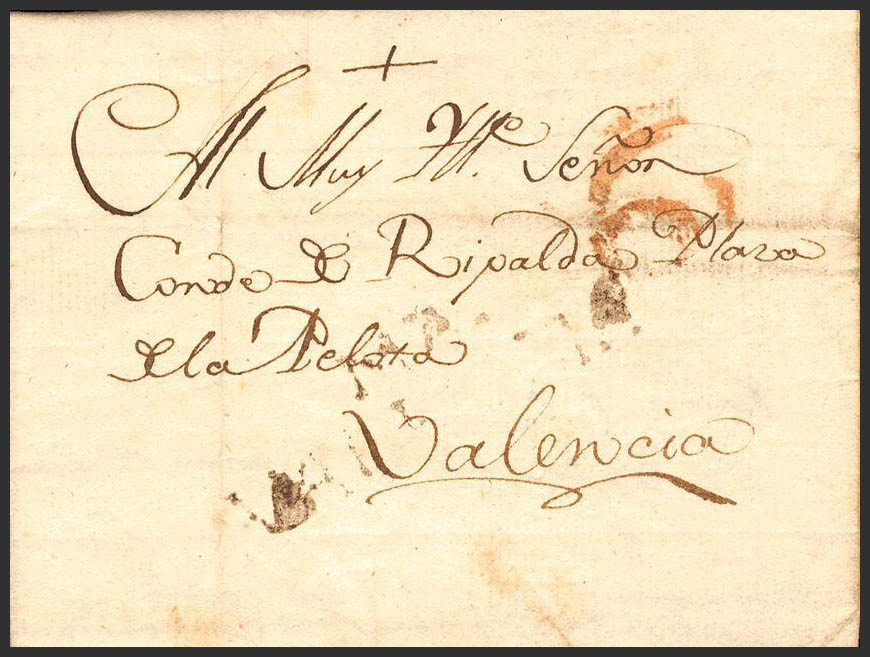 +
Al Muy Ille. Señor
Conde de Ripalda Plaza
de la Pelota
Valencia